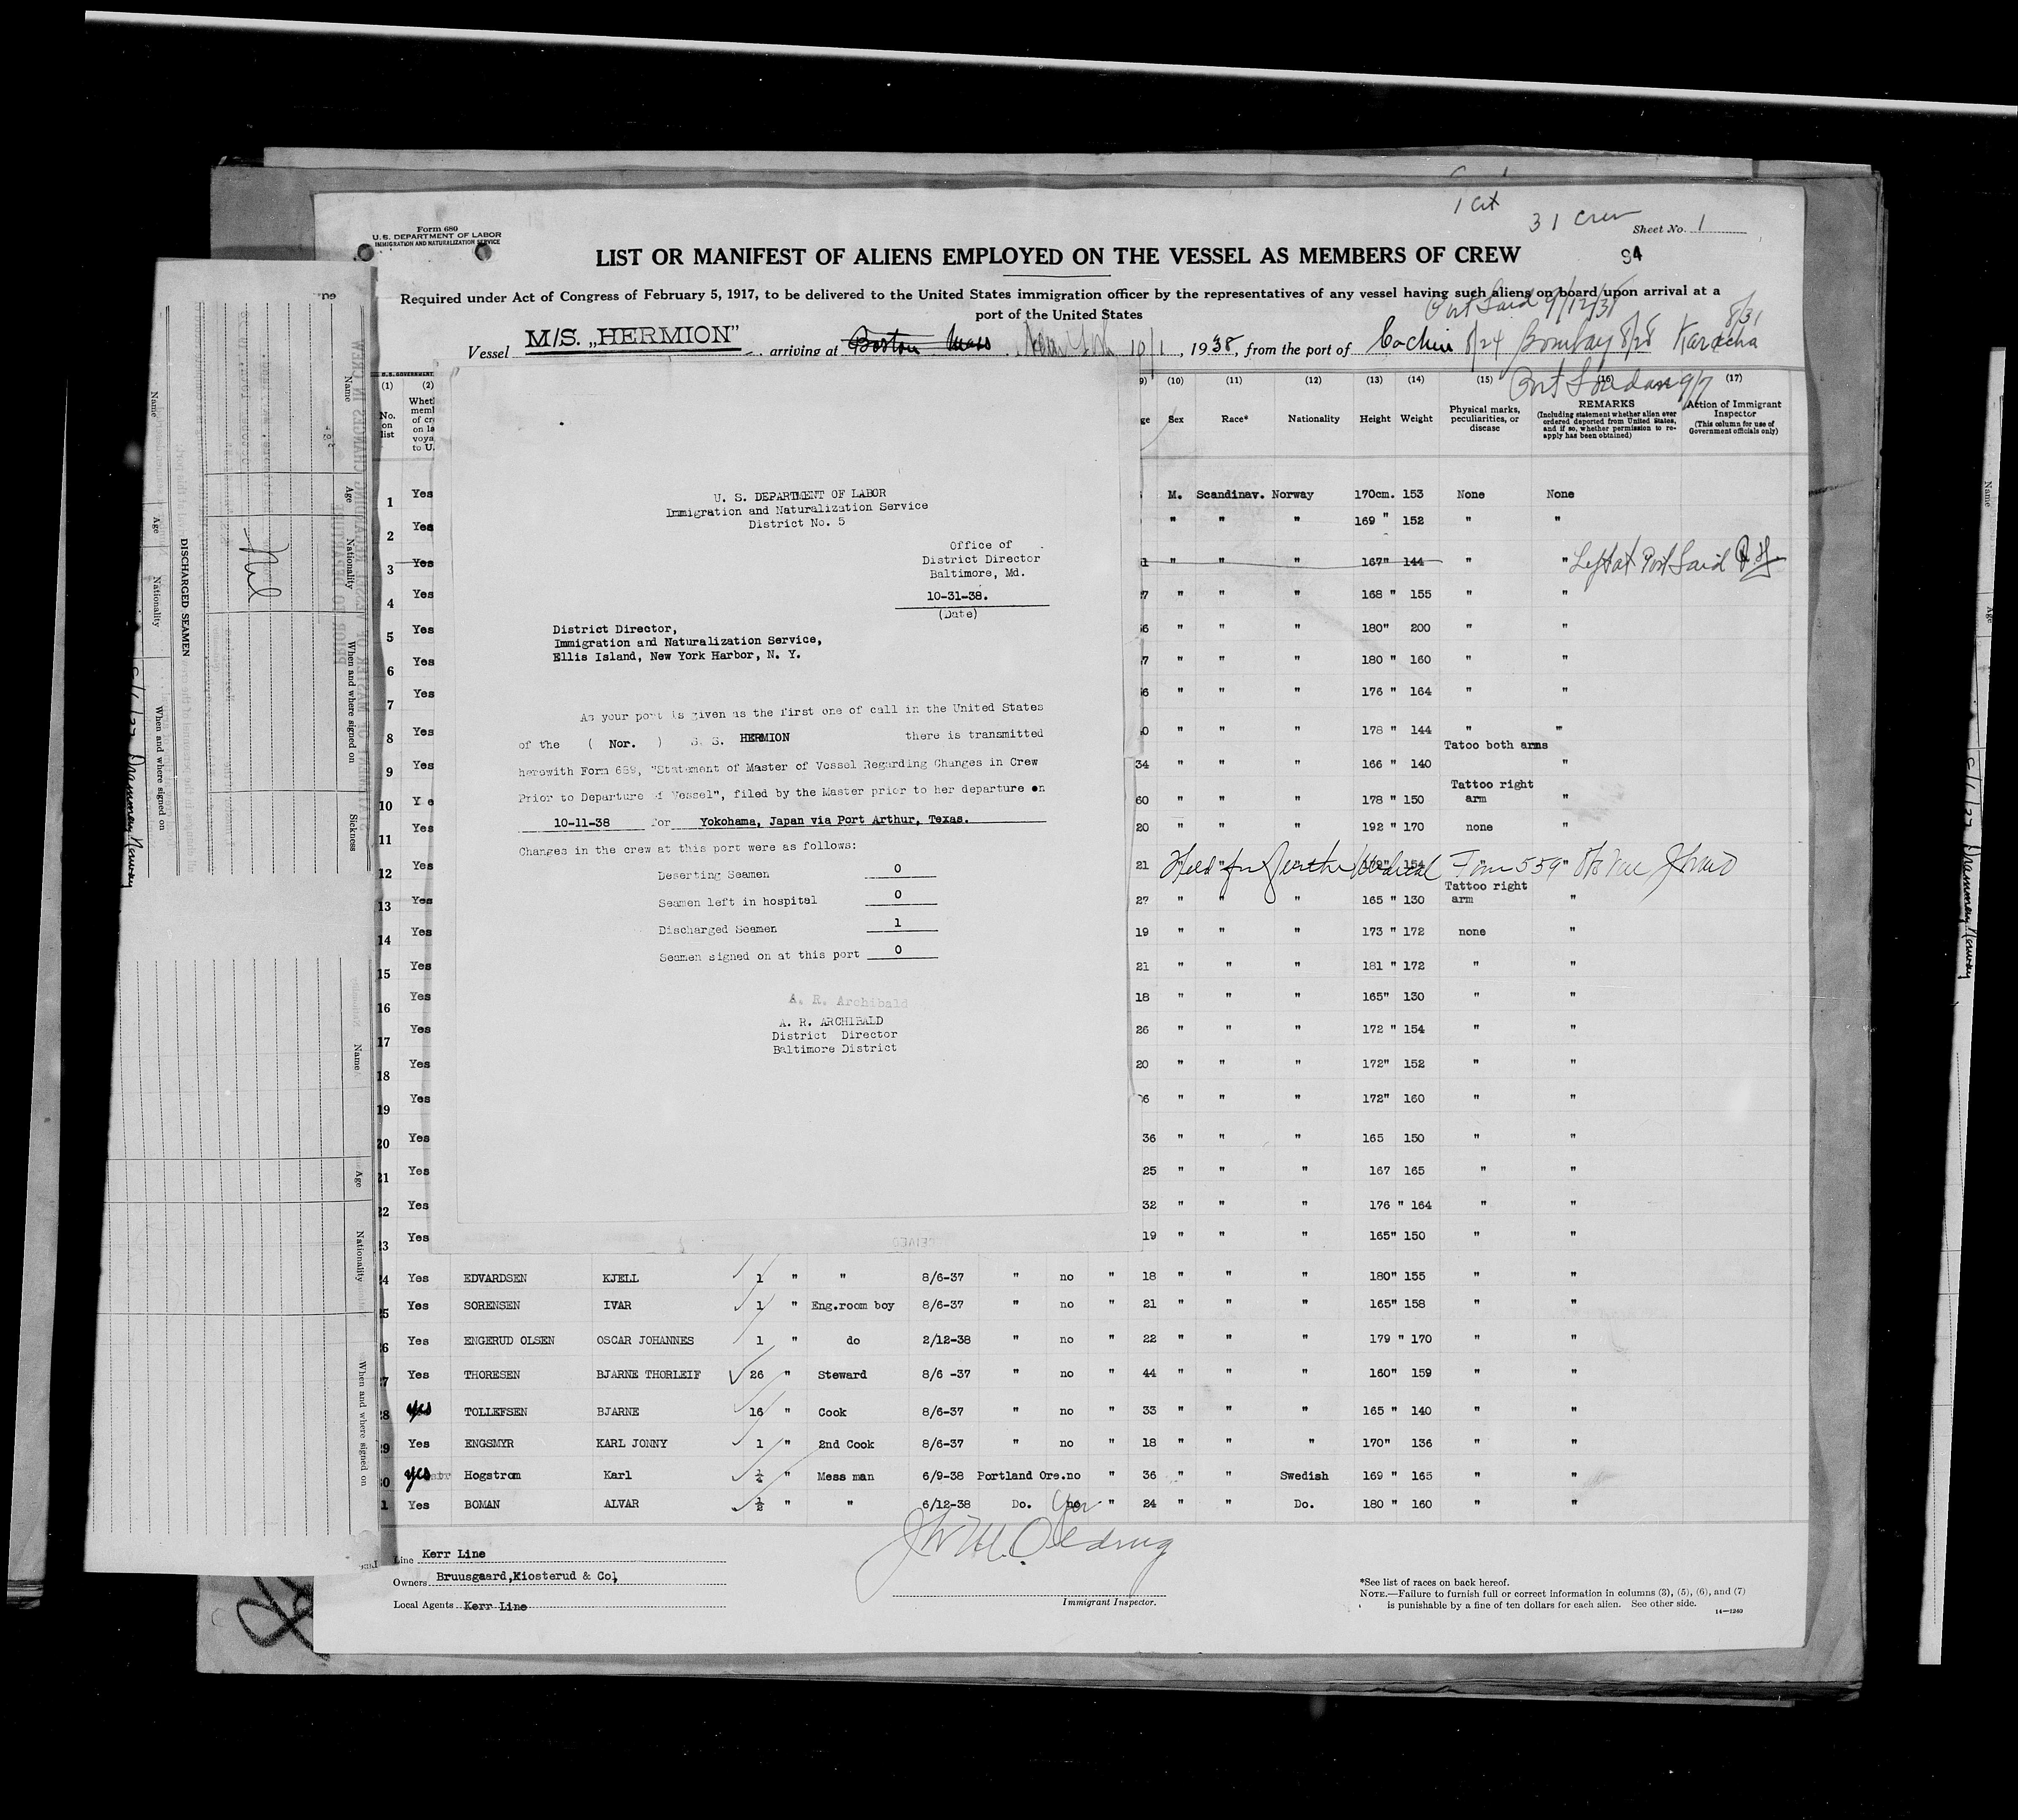 1 crt
31 Crew
Sheet No. 1
Form 680
U. S. DEPARTMENT OF LABOR
IMMIGRATION AND NATURALIZATION SERVICE
LIST OR MANIFEST OF ALIENS EMPLOYED ON THE VESSEL AS MEMBERS OF CREW
94
Required under Act of Congress of February 5, 1917, to be delivered to the United States immigration officer by the representatives of any vessel having such aliens on board upon arrival at a
port of the United States
Port Said 9/12/38
8/31
Vessel M/S. „HERMION" arriving at Boston Mass New York 10/1, 1938, from the port of Cochin 8/24 Bombay 8/28 Karachi
Port Soudan 9/7
(1) (2) (10) (11) (12) (13) (14) (15) (16) (17)
No. on list
Sex Race* Nationality Height Weight
Physical marks, peculiarities, or disease
REMARKS
(Including statement whether alien ever ordered deported from United States, and if so, whether permission to reapply has been obtained)
Action of Immigrant Inspector
(This column for use of Government officials only)
U. S. DEPARTMENT OF LABOR
Immigration and Naturalization Service
District No. 5
Office of
District Director
Baltimore, Md.
10-31-38.
(Date)
District Director,
Immigration and Naturalization Service,
Ellis Island, New York Harbor, N. Y.
As your port is given as the first one of call in the United States
of the ( Nor. ) S. S. HERMION there is transmitted
herewith Form 689, "Statement of Master of Vessel Regarding Changes in Crew
Prior to Departure of Vessel", filed by the Master prior to her departure on
10-11-38 for Yokohama, Japan via Port Arthur, Texas.
Changes in the crew at this port were as follows:
Deserting Seamen 0
Seamen left in hospital 0
Discharged Seamen 1
Seamen signed on at this port 0
A. R. Archibald
A. R. ARCHIBALD
District Director
Baltimore District
1 Yes M. Scandinav. Norway 170cm. 153 None None
2 Yes " " " 169 " 152 " "
3 Yes " " " 167" 144 " " Left at Port Said
4 Yes " " " 168 " 155 " "
5 Yes " " " 180" 200 " "
6 Yes " " " 180 " 160 " "
7 Yes " " " 176 " 164 " "
8 Yes " " " 178 " 144 " "
9 Yes 34 " " " 166 " 140 Tatoo both arms "
10 Ye 60 " " " 178 " 150 Tattoo right arm "
11 Yes 20 " " " 192 " 170 none "
12 Yes 21 Held for Further Medical Form 559
13 Yes 27 " " " 165 " 130 Tattoo right arm "
14 Yes 19 " " " 173 " 172 none "
15 Yes 21 " " " 181 " 172 " "
16 Yes 18 " " " 165" 130 " "
17 Yes 26 " " " 172 " 154 " "
18 Yes 20 " " " 172" 152 " "
19 Yes " " " 172" 160 " "
20 Yes 36 " " " 165 150 " "
21 Yes 25 " " " 167 165 " "
22 Yes 32 " " " 176 " 164 " "
23 Yes 19 " " " 165" 150 " "
4 Yes EDVARDSEN KJELL 1 " " 8/6-37 " no " 18 " " " 180" 155 " "
5 Yes SORENSEN IVAR 1 " Eng.room boy 8/6-37 " no " 21 " " " 165" 158 " "
6 Yes ENGERUD OLSEN OSCAR JOHANNES 1 " do 2/12-38 " no " 22 " " " 179 " 170 " "
7 Yes THORESEN BJARNE THORLEIF 26 " Steward 8/6 -37 " no " 44 " " " 160" 159 " "
8 yes TOLLEFSEN BJARNE 16 " Cook 8/6-37 " no " 33 " " " 165 " 140 " "
9 Yes ENGSMYR KARL JONNY 1 " 2nd Cook 8/6-37 " no " 18 " " " 170" 136 " "
0 yes Hogstrom Karl ¼ " Mess man 6/9-38 Portland Ore. no " 36 " " Swedish 169 " 165 " "
1 Yes BOMAN ALVAR ½ " " 6/12-38 Do. no " 24 " " Do. 180 " 160 " "
Line Kerr Line
Owners Bruusgaard,Kiosterud & Co,
Local Agents Kerr Line
Immigrant Inspector.
*See list of races on back hereof.
NOTE.—Failure to furnish full or correct information in columns (3), (5), (6), and (7)
is punishable by a fine of ten dollars for each alien. See other side.
14—1240
DISCHARGED SEAMEN
Name Age Nationality When and where signed on Sickness
Nil
Name Age Nationality When and where signed on
Drammen Norway
Name Age Nationality When and where signed on
Name Age
Drammen Norway